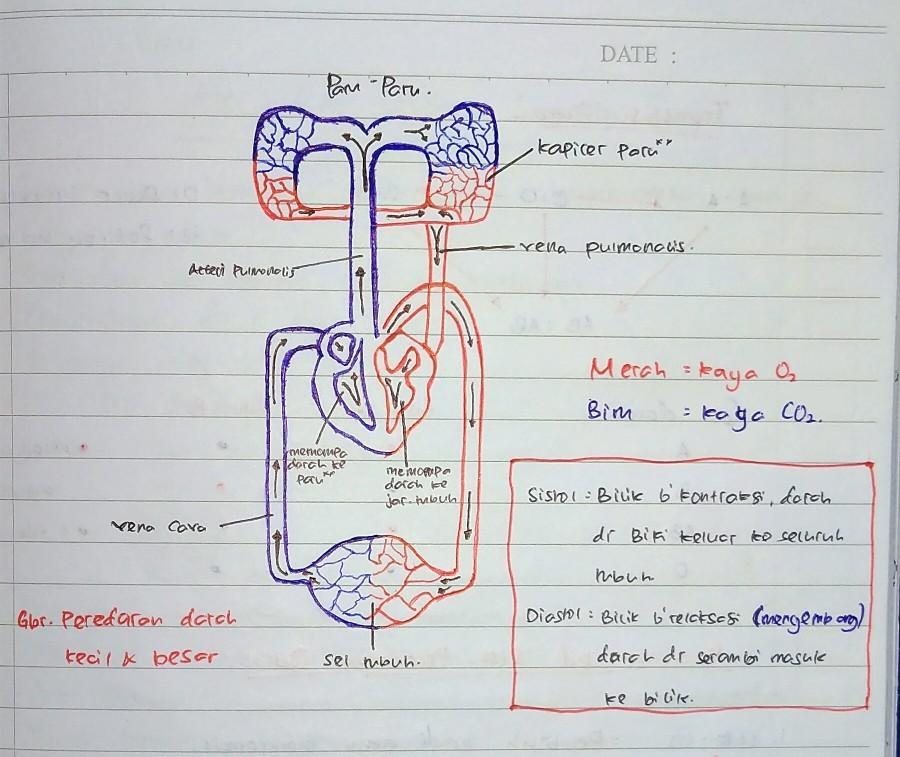 DATE :
Paru-Paru.
kapiler paru"
vena pulmonalis.
Arteri Pulmonalis
Merah = kaya O2
Biru = kaya CO2.
memompa
darah ke
paru"
memompa
darah ke
jar. tubuh
vena cava
Sistol : Bilik b'kontraksi, darah
dr Bilik keluar ke seluruh
tubuh
Diastol : Bilik b'relaksasi (mengembang)
darah dr serambi masuk
ke bilik.
Gbr. Peredaran darah
kecil & besar
sel tubuh.